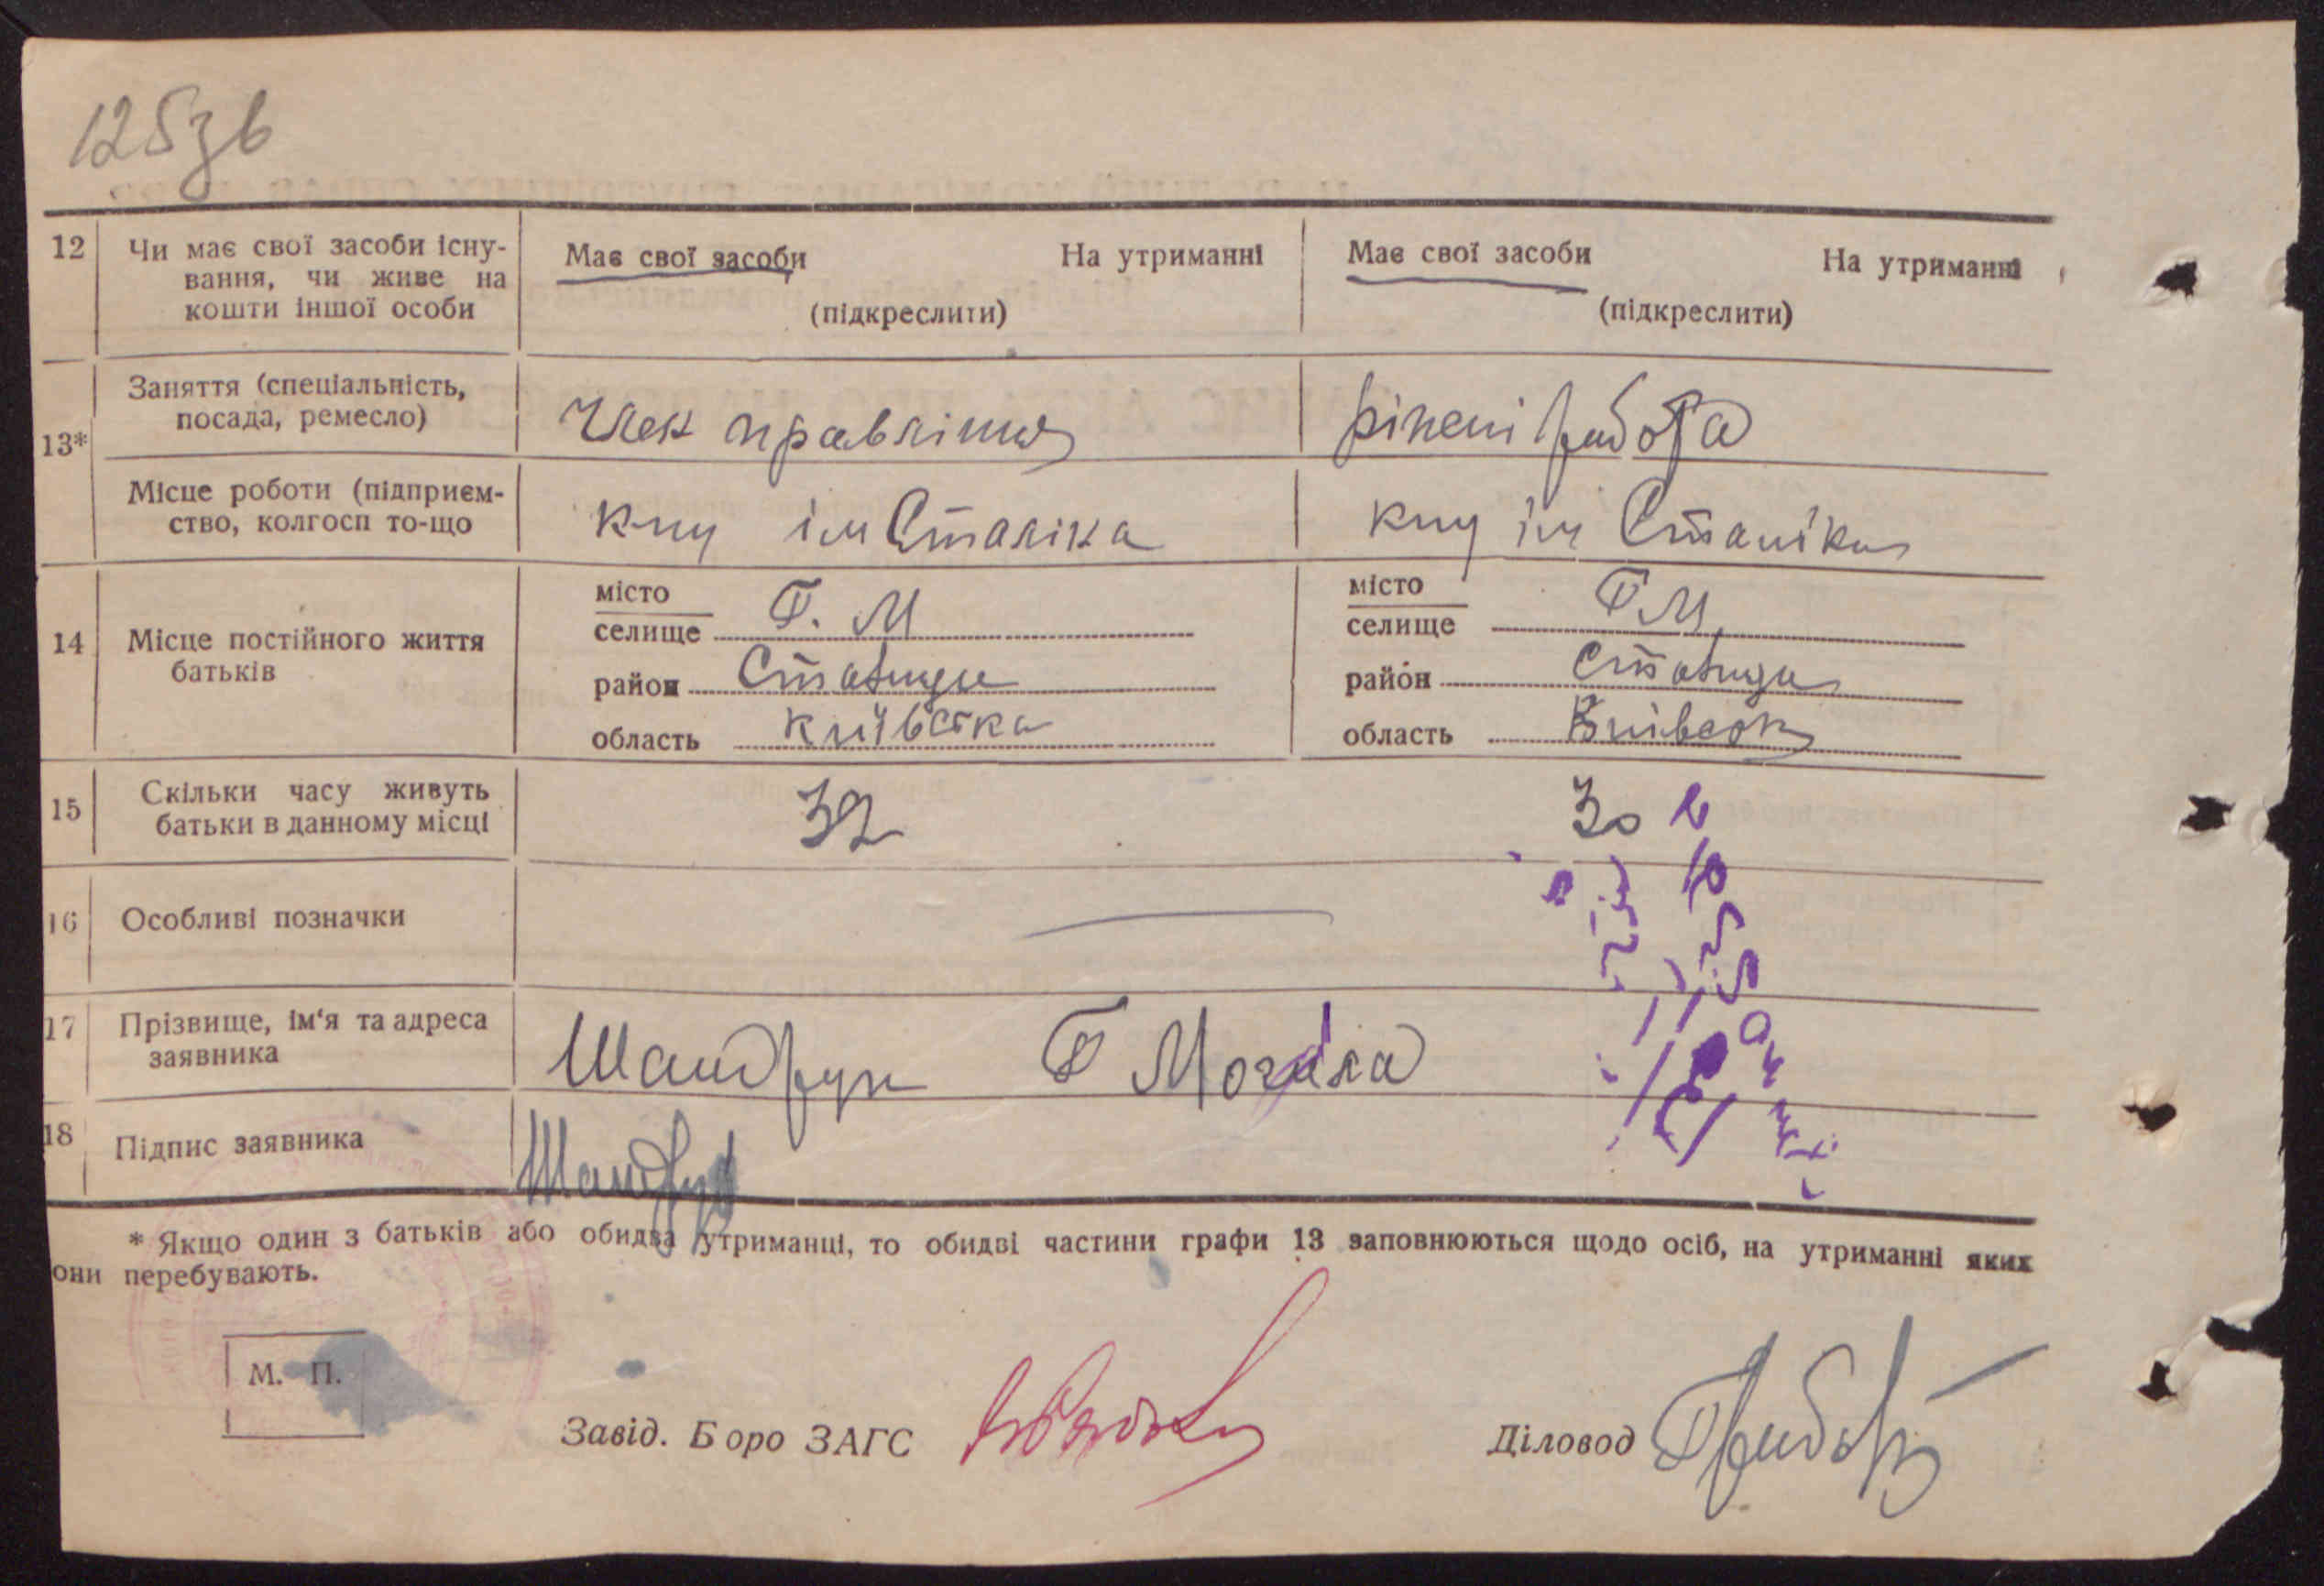 125зв
12 Чи має свої засоби існу-
вання, чи живе на
кошти іншої особи
Має свої засоби На утриманні
(підкреслити)
Має свої засоби На утриманні
(підкреслити)
13*
Заняття (спеціальність,
посада, ремесло)
Член правління
різні работа
Місце роботи (підприєм-
ство, колгосп то-що
ім Сталіна
ім Сталіна
14 Місце постійного життя
батьків
місто
селище Г. М
район Ставище
область Київська
місто
селище Г М
район Ставище
область Київськ
15 Скільки часу живуть
батьки в данному місці
32
30
16 Особливі позначки
17 Прізвище, ім‘я та адреса
заявника
Шандрук Г Могила
18 Підпис заявника
Шандрук
* Якщо один з батьків або обидва утриманці, то обидві частини графи 13 заповнюються щодо осіб, на утриманні яких
они перебувають.
М. П.
Завід. Боро ЗАГС
Діловод